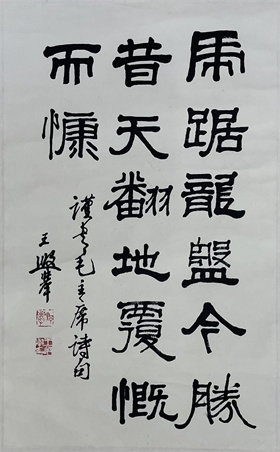 虎踞龍盤今勝
昔天翻地覆慨
而慷
謹书毛主席詩句
王遐舉